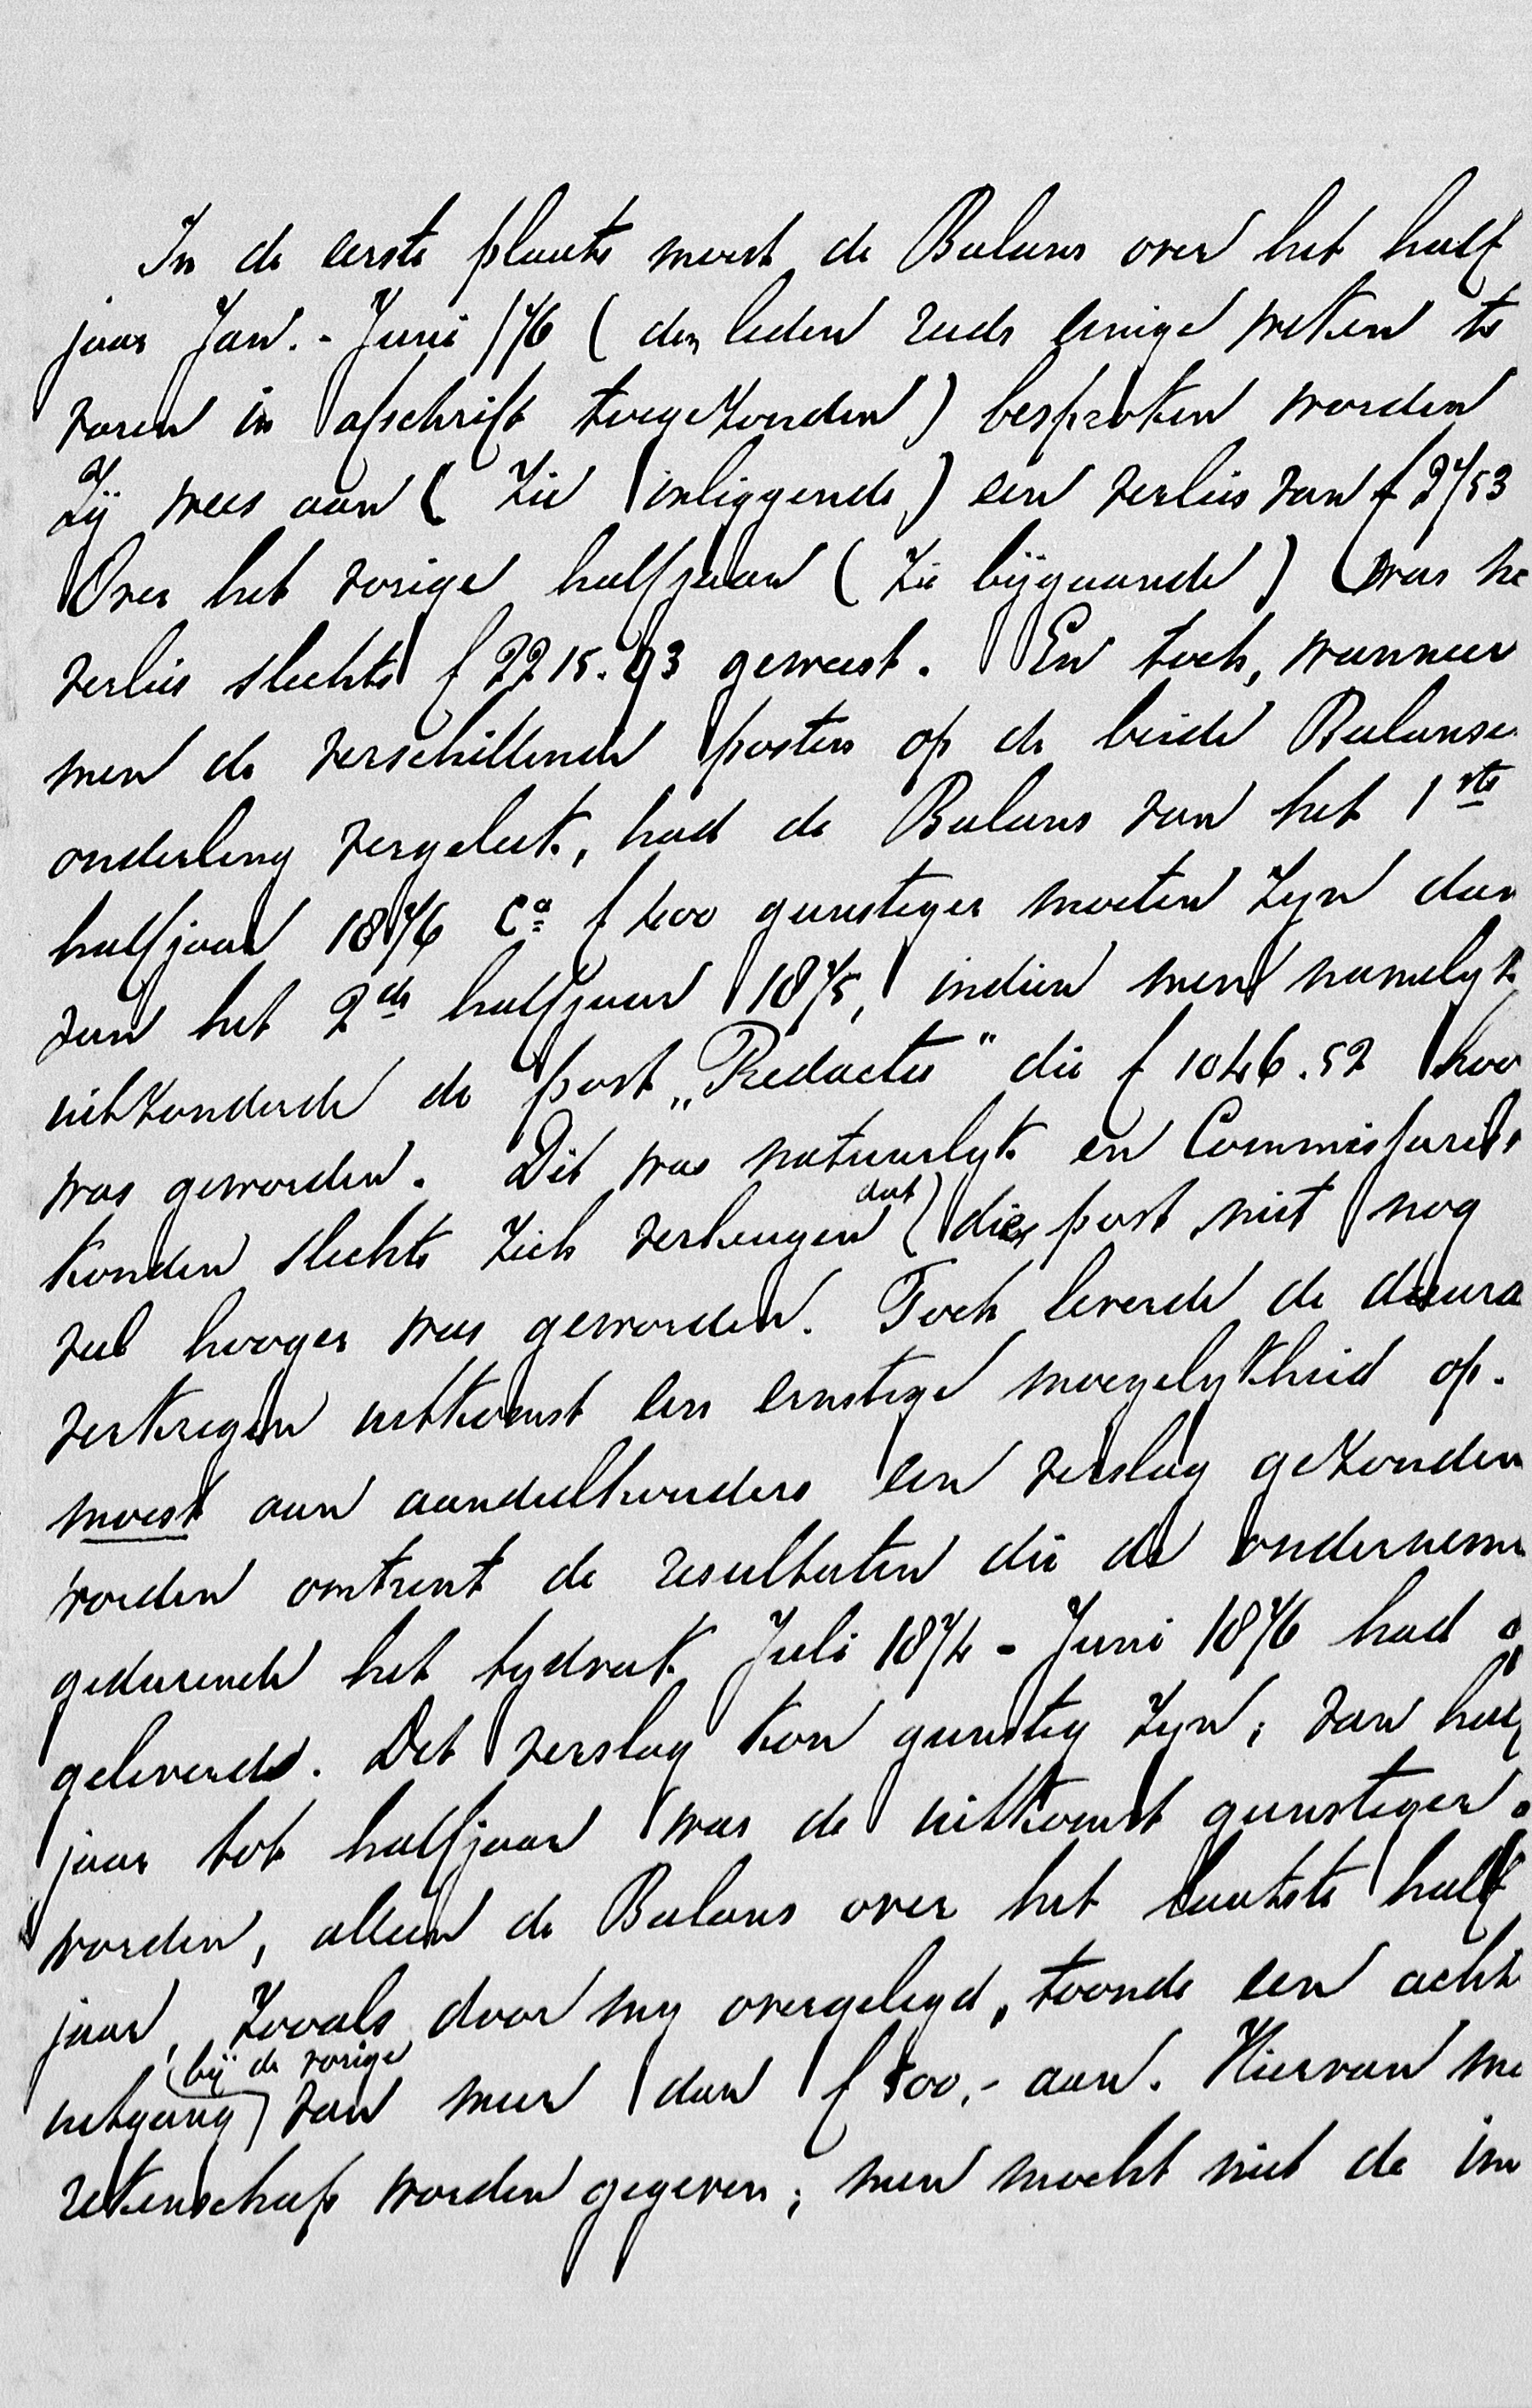 In de eerste plaats moest de Balans over het half
jaar Jan. - Juni /76 (den leden reeds eenige weken te
voren in afschrift toegezonden) besproken worden
Zij wees aan (zie inliggende) een verlies van f 2753
Over het vorige halfjaar (zie bijgaande) was he
verlies slechts f 2215.93 geweest. En toch, wanneer
men de verschillende posten op de beide Balanse
onderling vergeleek, had de Balans van het 1ste
halfjaar 1876 Ca f 400 gunstiger moeten zijn dan
van het 2de halfjaar 1875, indien men namelijk
uitzonderde de post „Redactie" die f 1046.52 hoo
was geworden. Dit was natuurlijk en Commissaris
konden slechts zich verheugen dat die post niet nog
veel hooger was geworden. Toch leverde de daara
verkregen uitkomst een ernstige moeyelykheid op.
moest aan aandeelhouders een verslag gezonden
worden omtrent de resultaten die de ondernemi
gedurende het tydvak Juli 1874 - Juni 1876 had
geleverd. Dit verslag kon gunstig zyn; van half
jaar tot halfjaar was de uitkomst gunstiger
worden, alleen de Balans over het laatste half
jaar, zooals door my overgelegd, toonde een acht
uitgang bij de vorige van meer dan f 500,- aan. Hiervan mo
rekenschap worden gegeven; men mocht niet de in